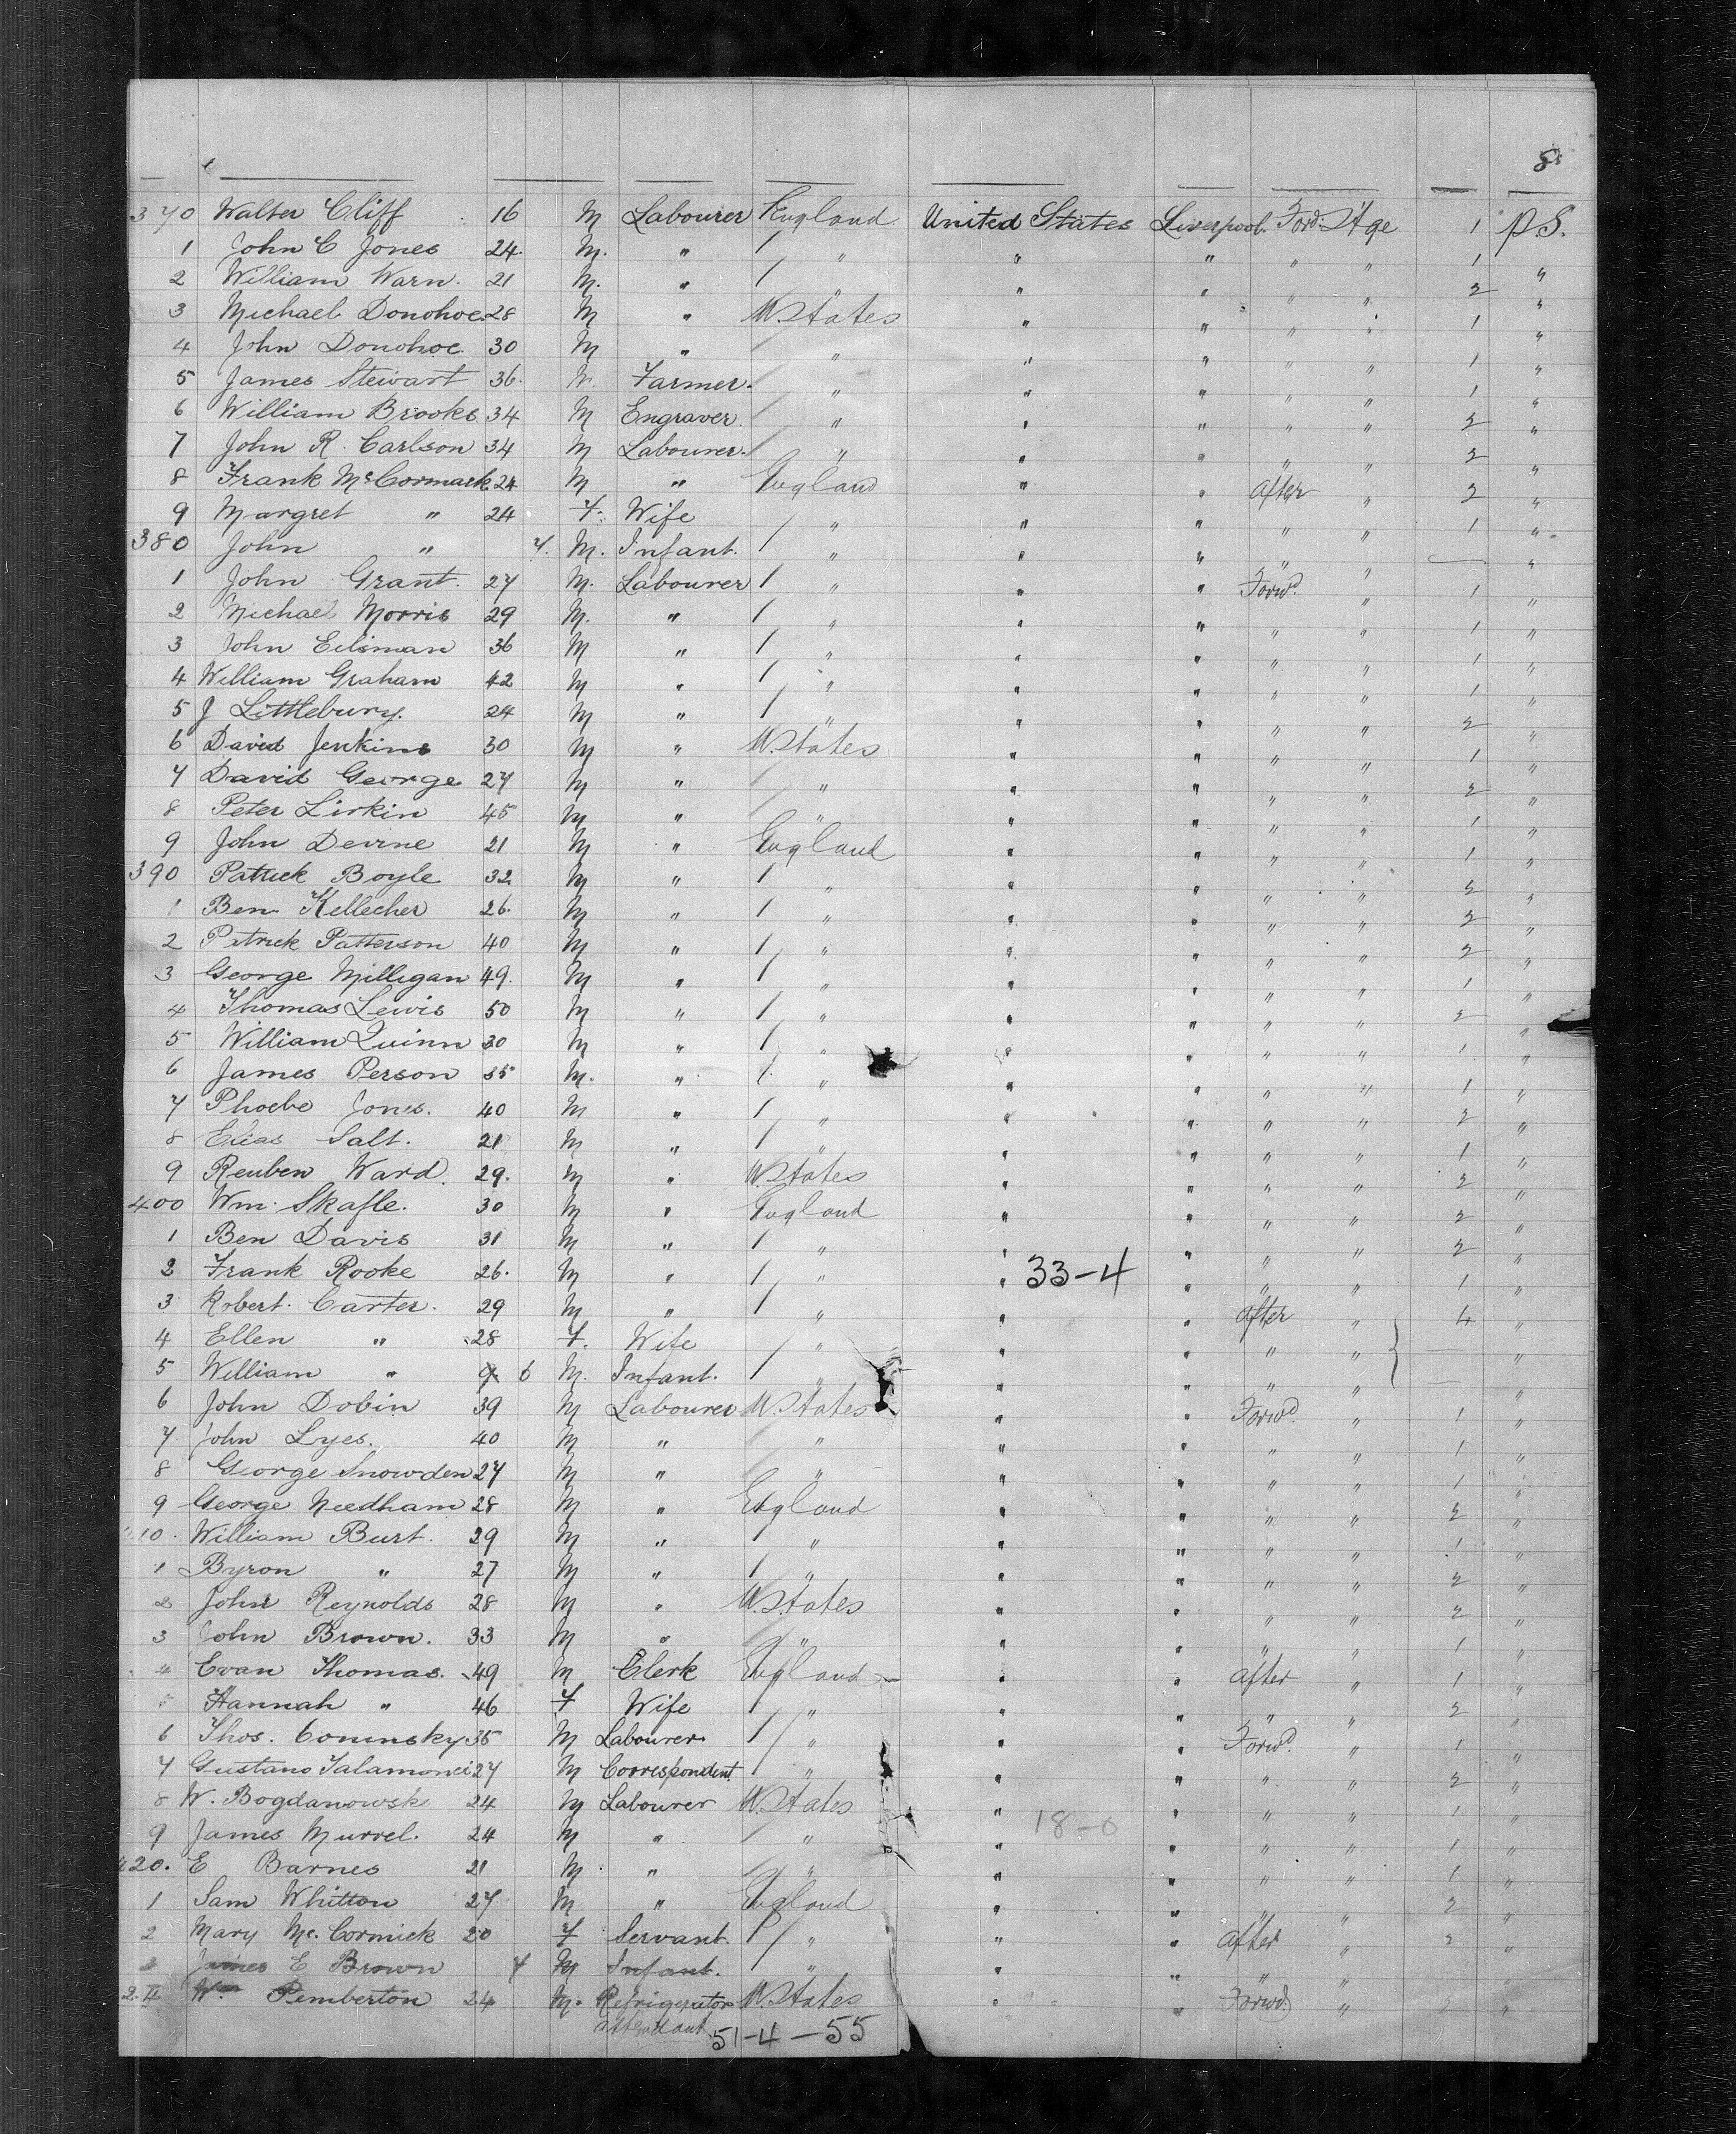 8
370 Walter Cliff 16 M Labourer England United States Liverpool Forw: Stge 1 P.S.
1 John C Jones 24. M. " / " " " " " 1 "
2 William Warn. 21 M. " / " " " " " 2 "
3 Michael Donohoe. 28 M " U. States " " " " 1 "
4 John Donohoe. 30 M " / " " " " " 1 "
5 James Stewart 36. M. Farmer. / " " " " " 1 "
6 William Brooks. 34 M Engraver. / " " " " " 2 "
7 John R. Carlson 34 M Labourer. / " " " " " 2 "
8 Frank McCormack. 24 M " England " " after " 2 "
9 Margret " 24 F. Wife / " " " " " 1 "
380 John " 7. M. Infant. / " " " " " — "
1 John Grant. 27 M. Labourer / " " " Forwd. " 1 "
2 Michael Morris 29 M. " / " " " " " 1 "
3 John Eilsman 36 M " / " " " " " 1 "
4 William Graham 42 M " / " " " " " 1 "
5 J Littlebury. 24 M " / " " " " " 2 "
6 David Jenkins 30 M " U. States " " " " 1 "
7 David George 27 M " / " " " " " 2 "
8 Peter Lirkin 45 M " / " " " " " 1 "
9 John Devine 21 M " England " " " " 1 "
390 Patrick Boyle 32 M " / " " " " " 2 "
1 Ben Kellecher 26. M " / " " " " " 2 "
2 Patrick Patterson 40 M " / " " " " " 2 "
3 George Milligan 49. M " / " " " " " 1 "
4 Thomas Lewis 50 M " / " " " " " 2 "
5 William Quinn 30 M " / " " " " " 1 "
6 James Person 35 M. " / " " " " " 1 "
7 Phoebe Jones. 40 M " / " " " " " 2 "
8 Elias Salt. 21 M " / " " " " " 1 "
9 Reuben Ward. 29. M " U. States " " " " 2 "
400 Wm. Skafle. 30 M " England " " " " 2 "
1 Ben Davis 31 M " / " " " " " 2 "
2 Frank Rooke 26. M " / " " 33-4 " " " 1 "
3 Robert. Carter. 29 M " / " " " after " 4 "
4 Ellen " 28 F. Wife / " " " " " — "
5 William " 6 M. Infant. / " " " " " — "
6 John Dobin 39 M Labourer U. States " " Forwd. " 1 "
7 John Lyes. 40 M " / " " " " " 1 "
8 George Snowden 27 M " / " " " " " 1 "
9 George Needham 28 M " England " " " " 2 "
10. William Burt. 29 M " / " " " " " 1 "
1 Byron " 27 M " / " " " " " 2 "
2 John Reynolds 28 M " U. States " " " " 2 "
3 John Brown. 33 M " / " " " " " 1 "
4 Evan Thomas. 49 M Clerk England " " after " 1 "
Hannah " 46 F Wife / " " " " " 2 "
6 Thos. Cominsky 35 M Labourer / " " " Forwd. " 1 "
7 Gustano Salamonei 27 M Correspondent / " " " " " 2 "
8 W. Bogdanowski 24 M Labourer U. States " " " " 1 "
9 James Murrel. 24 M " / " " 18-0 " " " 1 "
420. E Barnes 21 M " / " " " " " 1 "
1 Sam Whitton 27 M " England " " " " 2 "
2 Mary Mc. Cormick 20 F Servant. / " " " after " 2 "
James E Brown 7 M Infant. / " " " " "
24 Wm Pemberton 24 M. Refrigerator U. States " " Forwd. " 2 "
attendant. 51-4-55